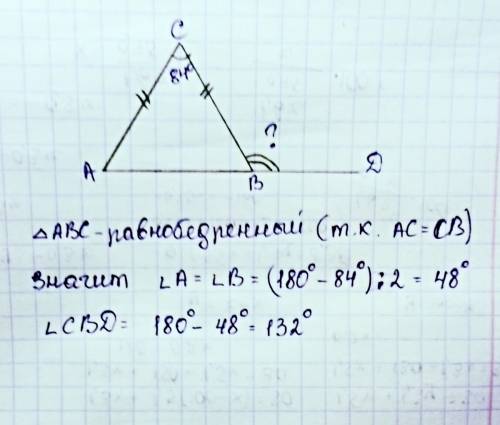 C
84°
?
A
B
D
△ABC - равнобедренный (т.к. AC = CB)
Значит ∠A = ∠B = (180° - 84°) : 2 = 48°
∠CBD = 180° - 48° = 132°